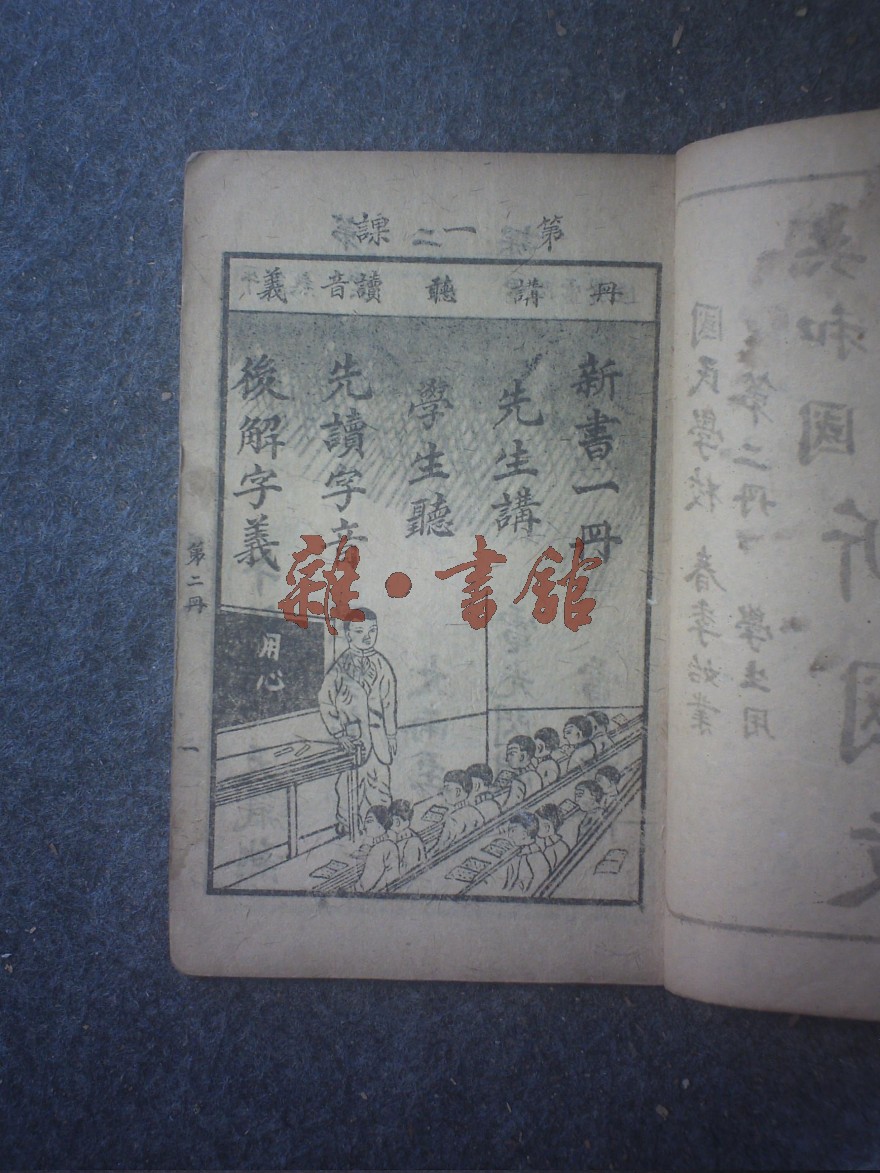 第一課
冊 講 聽 讀音 義
新書一冊
先生講
學生聽
先讀字音
後解字義
用心
第二冊
一
雜·書館
國民學校 春季始業
第二冊 學生用
和國